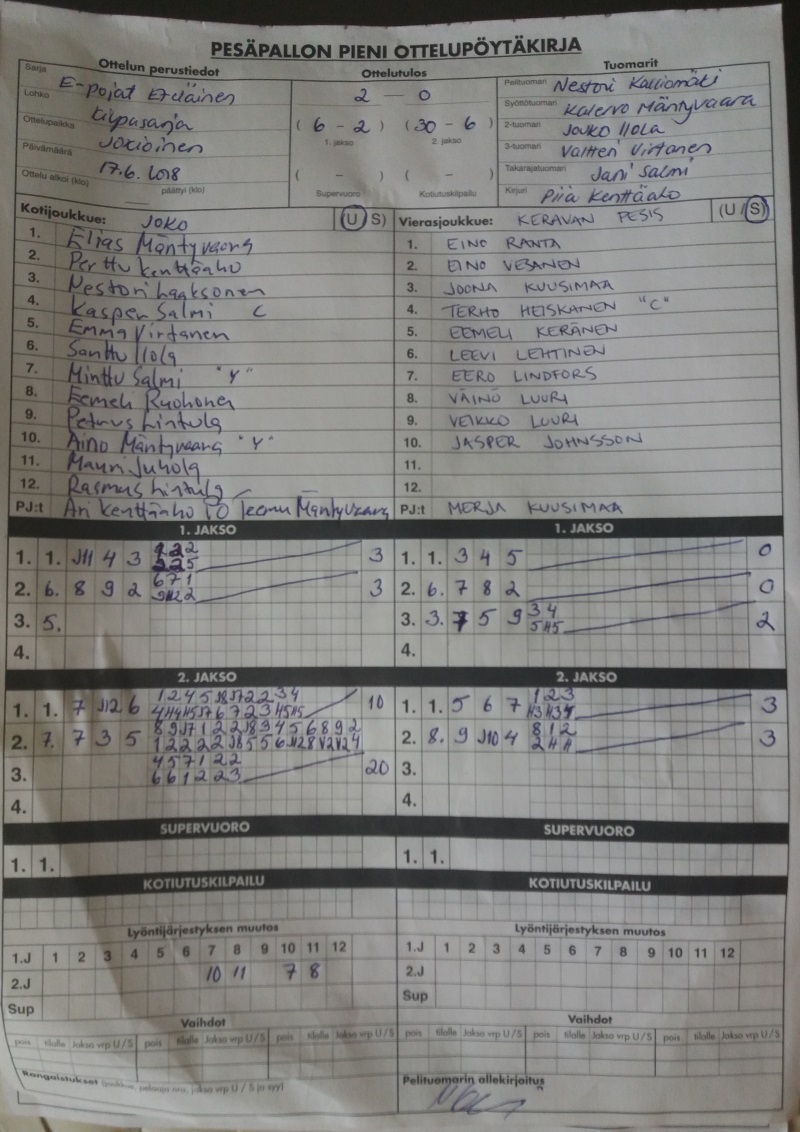 PESÄPALLON PIENI OTTELUPÖYTÄKIRJA
Ottelun perustiedot
Sarja E-pojat Eteläinen
Lohko Kilpasarja
Ottelupaikka Jokioinen
Päivämäärä 17.6.2018
Ottelu alkoi (klo) päättyi (klo)
Ottelutulos
2 — 0
( 6 - 2 ) ( 30 - 6 )
1. jakso 2. jakso
( - ) ( - )
Supervuoro Kotiutuskilpailu
Tuomarit
Pelituomari Nestori Kalliomäki
Syöttötuomari Kalervo Mäntyvaara
2-tuomari Jouko Ilola
3-tuomari Valtteri Virtanen
Takarajatuomari Jani Salmi
Kirjuri Piia Kenttäaho
Kotijoukkue: JOKO (U/S)
1. Elias Mäntyvaara
2. Perttu Kenttäaho
3. Nestori Laaksonen
4. Kasper Salmi C
5. Emma Virtanen
6. Santtu Ilola
7. Minttu Salmi "Y"
8. Eemeli Ruohonen
9. Petrus Lintula
10. Aino Mäntyvaara "Y"
11. Mauri Juhola
12. Rasmus Lintula
PJ:t Ari Kenttäaho TO Teemu Mäntyvaara
Vierasjoukkue: KERAVAN PESIS (U/S)
1. EINO RANTA
2. EINO VESANEN
3. JOONA KUUSIMAA
4. TERHO HEISKANEN "C"
5. EEMELI KERÄNEN
6. LEEVI LEHTINEN
7. EERO LINDFORS
8. VÄINÖ LUURI
9. VEIKKO LUURI
10. JASPER JOHNSSON
11.
12.
PJ:t MERJA KUUSIMAA
1. JAKSO
1. 1. J11 4 3 3
2. 6. 8 9 2 671 3
3. 5.
4.
1. JAKSO
1. 1. 3 4 5 0
2. 6. 7 8 2 0
3. 3. 7 5 9 3 4 2
4.
2. JAKSO
1. 1. 7 J12 6 10
2. 7. 7 3 5
3. 4 5 7 1 2 2
6 6 1 2 2 3 20
4.
2. JAKSO
1. 1. 5 6 7 1 2 3 3
2. 8. 9 J10 4 8 1 2 3
3.
4.
SUPERVUORO
1. 1.
SUPERVUORO
1. 1.
KOTIUTUSKILPAILU
KOTIUTUSKILPAILU
Lyöntijärjestyksen muutos
1.J 1 2 3 4 5 6 7 8 9 10 11 12
2.J 10 11 7 8
Sup
Lyöntijärjestyksen muutos
1.J 1 2 3 4 5 6 7 8 9 10 11 12
2.J
Sup
Vaihdot
pois tilalle Jakso vrp U/S pois tilalle Jakso vrp U/S
Vaihdot
pois tilalle Jakso vrp U/S pois tilalle Jakso vrp U/S pois tilalle Jakso vrp U/S
Rangaistukset (joukkue, pelaaja nro, jakso vrp U / S ja syy)
Pelituomarin allekirjoitus